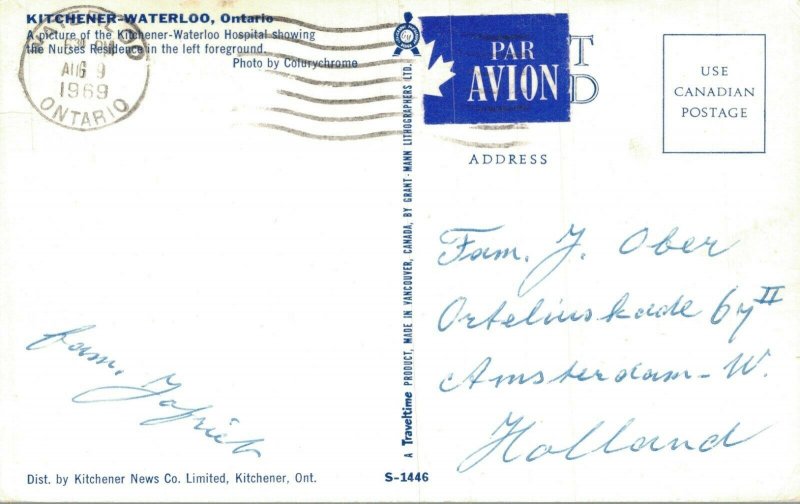 KITCHENER-WATERLOO, Ontario
A picture of the Kitchener-Waterloo Hospital showing
the Nurses Residence in the left foreground.
Photo by Colurychrome
WATERLOO
PM
AUG 9
1969
ONTARIO
PAR
AVION
USE
CANADIAN
POSTAGE
ADDRESS
A Traveltime PRODUCT, MADE IN VANCOUVER, CANADA, BY GRANT-MANN LITHOGRAPHERS LTD.
Fam. J. Ober
Orteliuskade 67 II
Amsterdam-W.
Holland
fam.
Dist. by Kitchener News Co. Limited, Kitchener, Ont.
S-1446